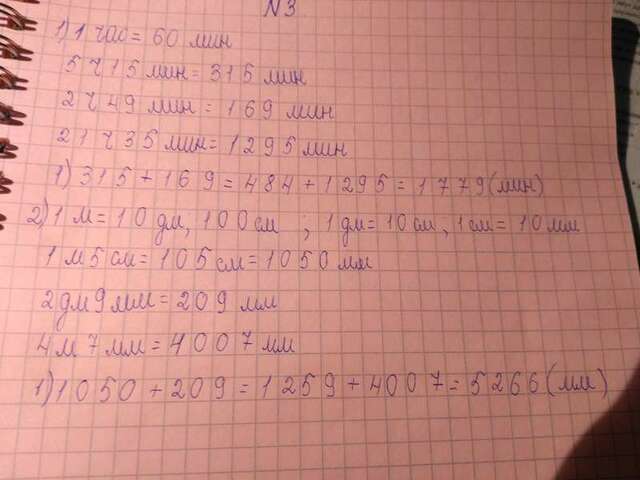 N3
1) 1 час = 60 мин
5 ч 15 мин = 315 мин
2 ч 49 мин = 169 мин
21 ч 35 мин = 1295 мин
1) 315 + 169 = 484 + 1295 = 1779 (мин)
2) 1 м = 10 дм, 100 см ; 1 дм = 10 см, 1 см = 10 мм
1 м 5 см = 105 см = 1050 мм
2 дм 9 мм = 209 мм
4 м 7 мм = 4007 мм
1) 1050 + 209 = 1259 + 4007 = 5266 (мм)